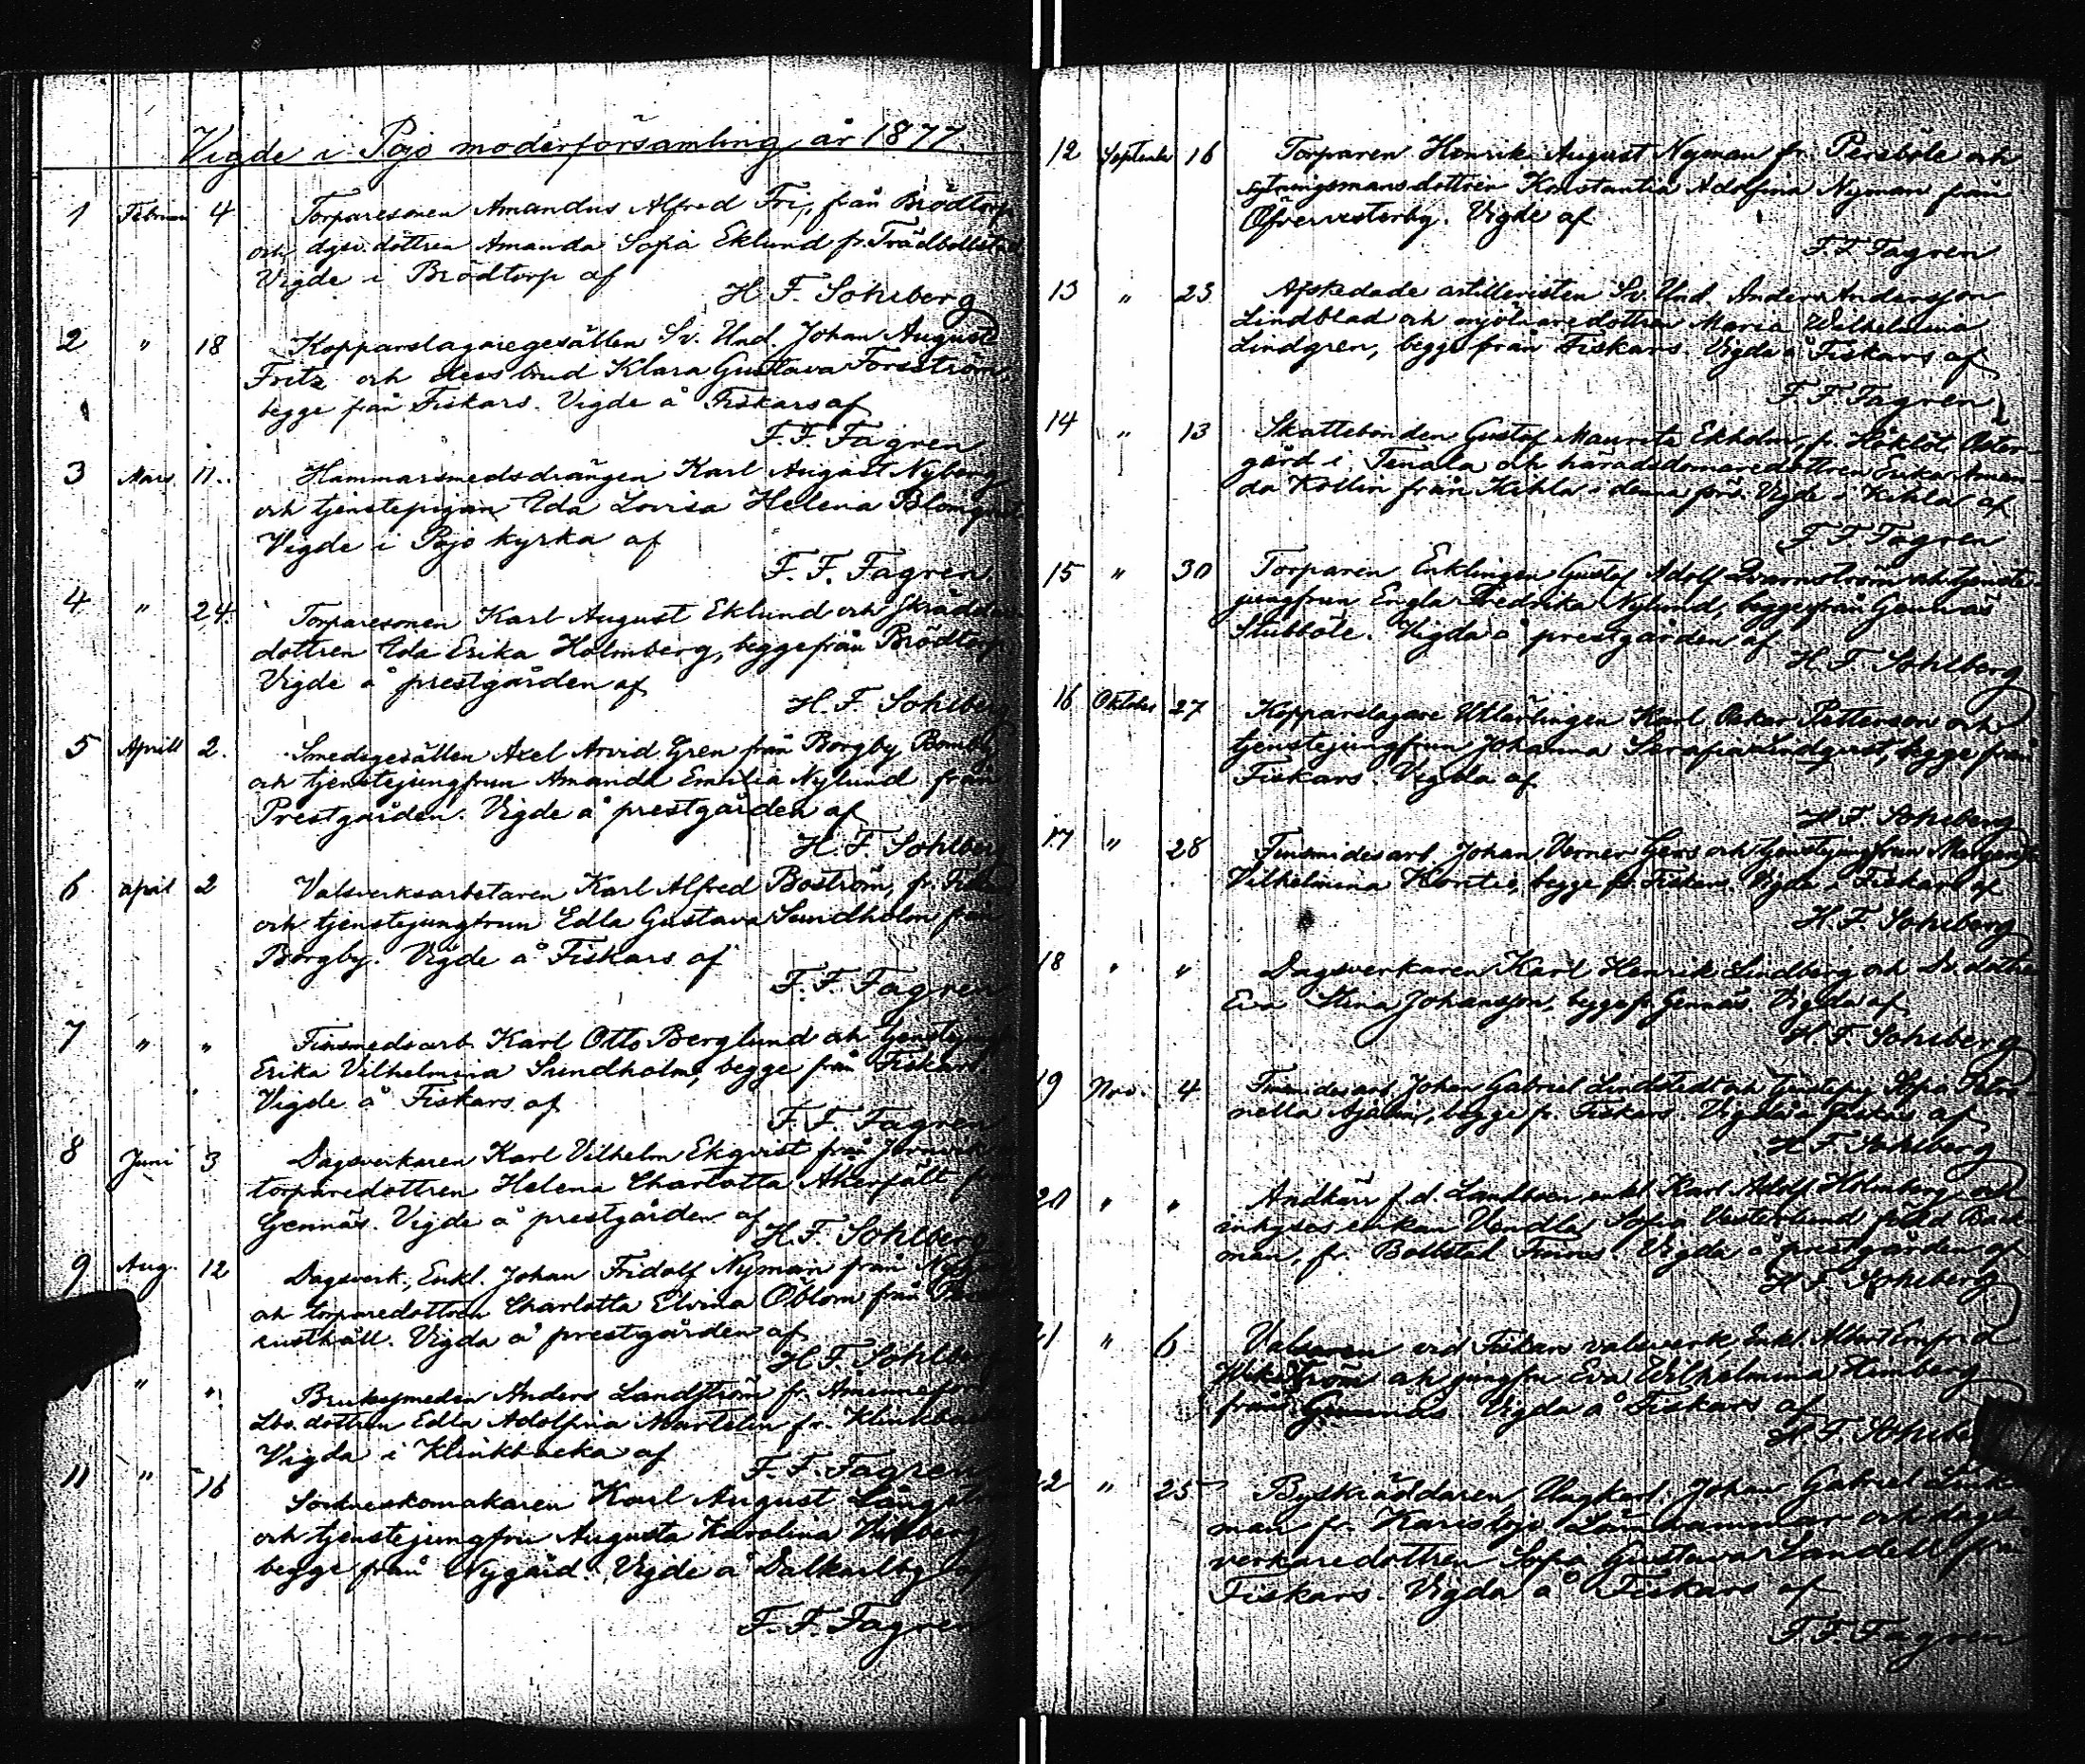 Vigde i Pojo moderförsamling år 1877.
1 Februari 4 Torparesonen Amandus Alfred Fri, från Brödtorp
och dgsv. dottren Amanda Sofia Eklund fr. Trädbollstad
Vigde i Brödtorp af
H. F. Sohlberg
2 " 18 Kopparslagaregesällen Sv. Und. Johan August
Fritz och dess brud Klara Gustava Forsström,
begge från Fiskars. Vigde å Fiskars af
F. F. Fagren
3 Mars 11. Hammarsmedsdrängen Karl August Nyberg
och tjenstepigan Eda Lovisa Helena Blomqvist
Vigde i Pojo kyrka af
F. F. Fagren
4 " 24. Torparesonen Karl August Eklund och Skräddare
dottren Eda Erika Holmberg, begge från Brödtorp
Vigde å prestgården af
H. F. Sohlberg
5 Aprill 2. Smedsgesällen Axel Arvid Gren från Borgby
och tjenstejungfrun Amanda Emilia Nylund från
Prestgården. Vigde å prestgården af
H. F. Sohlberg
6 april 2 Valsverksarbetaren Karl Alfred Boström, fr.
och tjenstejungfrun Edla Gustava Sundholm från
Borgby. Vigde å Fiskars af
F. F. Fagren
7 " " Finsmedsarb. Karl Otto Berglund och tjenstejungf
Erika Vilhelmina Sundholm, begge från Fiskars.
Vigde å Fiskars af
F. F. Fagren
8 Juni 3 Dagsverkaren Karl Vilhelm Ekqvist från
torparedottren Helena Charlotta Åkerfält från
Gennäs. Vigde å prestgården af
H. F. Sohlberg
9 Aug. 12 Dagsverk., Enkl. Johan Fridolf Nyman från
och torparedottren Charlotta Elvina Öblom från
rusthåll. Vigda å prestgården af
H. F. Sohlberg
" " Bruksmeden Anders Landström fr. Åminnefors
Lbo. dottren Edla Adolfina Martelin fr. Klinkbacka
Vigda i Klinkbacka af
F. F. Fagren
11 " 16 Sockneskomakaren Karl August
och tjenstejungfru Augusta Karolina
begge från Nygård. Vigde å Dalkarlby af
F. F. Fagren
12 Septemb 16 Torparen Henrik August Nyman fr. Persböle och
sytningsmansdottren Konstantia Adolfina Nyman från
Öfvervesterby. Vigde af
F. F. Fagren
13 " 23 Afskedade artilleristen Sv. Und. Anders Andersson
Lindblad och mjölnaredottren Maria Wilhelmina
Lindgren, begge från Fiskars. Vigda å Fiskars af
F. F. Fagren
14 " 13 Skattebonden Gustaf Mauritz Ekholm, fr. Öster-
gård i Tenala och häradsdomaredottren Erika Aman-
da Kollin från Kihla i denna förs. Vigde i Kihla af
F. F. Fagren
15 " 30 Torparen Enklingen Gustaf Adolf Qvarnström och tjenste-
jungfrun Engla Fredrika Nylund, begge från Gennäs
Stubböle. Vigda å prestgården af
H. F. Sohlberg
16 Oktober 27 Kopparslagare Utlärlingen Karl Oskar Petterson och
tjenstejungfrun Johanna Serafia Lindqvist, begge från
Fiskars. Vigda af
H. F. Sohlberg
17 " 28 Finsmidesarb. Johan Verner Gers och tjenstejungfrun Margareta
Vilhelmina begge fr. Fiskars. Vigda i Fiskars af
H. F. Sohlberg
18 " " Dagsverkaren Karl Henrik Lindberg och Dr. dottren
Eva Stina Johansson, begge fr. Gennäs. Vigda af
H. F. Sohlberg
19 Nov. 4 Finsmidesarb. Johan Gabriel Lindstedt och tjenstepig. Sofia Petro-
nella begge fr. Fiskars. Vigda å Fiskars af
H. F. Sohlberg
20 " " f. d. Landboen, enkl. Karl Adolf Holmberg och
inhyses enkan Vendla Sofia Vesterlund född Back-
man, fr. Bollstad Finnas. Vigda å prestgården af
H. F. Sohlberg
21 " 6 Valsaren vid Fiskars valsverk, Enkl. Albert Ernfrid
Wikström och jungfru Eva Wilhelmina Himberg
från Gennäs. Vigda å Fiskars af
H. F. Sohlberg
22 " 25 Byskräddaren, Ungkarl Johan Gabriel
man fr. Karislojo och dags-
verkaredottren Sofia Gustava Sandell från
Fiskars. Vigda å Fiskars af
F. F. Fagren